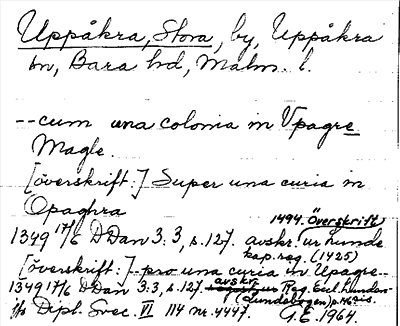 Uppåkra, Stora, by, Uppåkra
sn, Bara hd, Malm. l.
--cum una colonia in Upagre
Magle.
[överskrift:] Super una curia in
Opaghra
1494. Överskrift
1349 17/6 DDan 3:3, s.127. avskr. ur hunde
kap.reg. (1425)
[överskrift:] --pro una curia in Upagre--
1349 17/6 DDan 3:3, s.127. avskr. Reg. Eccl. Lunden-
(Lundebogen) p.
Dipl. Svec. VI 114 nr. 4447. G.E. 1964.